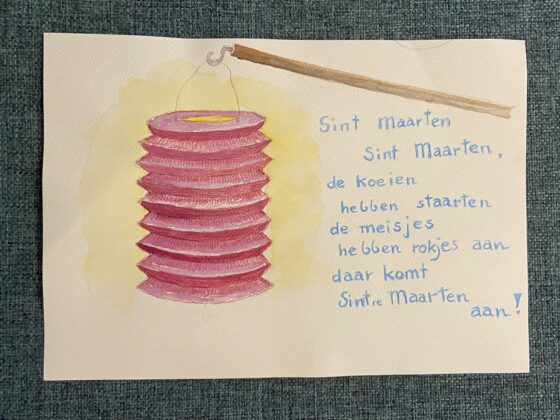 Sint Maarten
Sint Maarten,
de koeien
hebben staarten
de meisjes
hebben rokjes aan
daar komt
Sintre Maarten
aan!